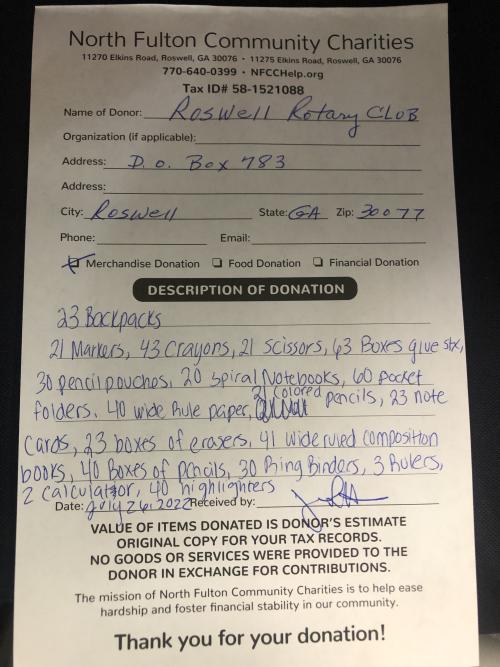 North Fulton Community Charities
11270 Elkins Road, Roswell, GA 30076 • 11275 Elkins Road, Roswell, GA 30076
770-640-0399 • NFCCHelp.org
Tax ID# 58-1521088
Name of Donor: Roswell Rotary CLUB
Organization (if applicable):
Address: P.O. Box 783
Address:
City: Roswell State: GA Zip: 30077
Phone: Email:
Merchandise Donation Food Donation Financial Donation
DESCRIPTION OF DONATION
23 Backpacks
21 Markers, 43 Crayons, 21 Scissors, 63 Boxes glue stx,
30 pencil pouchos, 20 spiral Notebooks, 60 pocket
folders, 40 wide Rule paper, 21 colored pencils, 23 note
Cards, 23 boxes of erasers, 41 wide ruled composition
books, 40 Boxes of Pencils, 30 Ring Binders, 3 Rulers,
2 calculator, 40 highlighters
Date: July 26, 2022 Received by:
VALUE OF ITEMS DONATED IS DONOR'S ESTIMATE
ORIGINAL COPY FOR YOUR TAX RECORDS.
NO GOODS OR SERVICES WERE PROVIDED TO THE
DONOR IN EXCHANGE FOR CONTRIBUTIONS.
The mission of North Fulton Community Charities is to help ease
hardship and foster financial stability in our community.
Thank you for your donation!